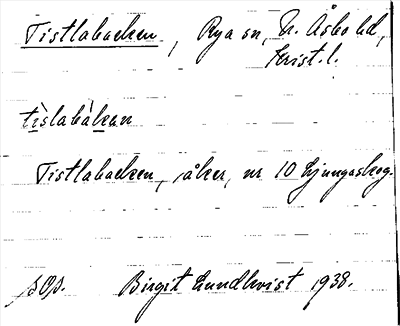 Tistlabacken, Rya sn, N. Åsbo hd,
Krist. l.
tìslabàkan
Tistlabacken, åker, nr 10 Ljungaskog.
Birgit Lundkvist 1938.